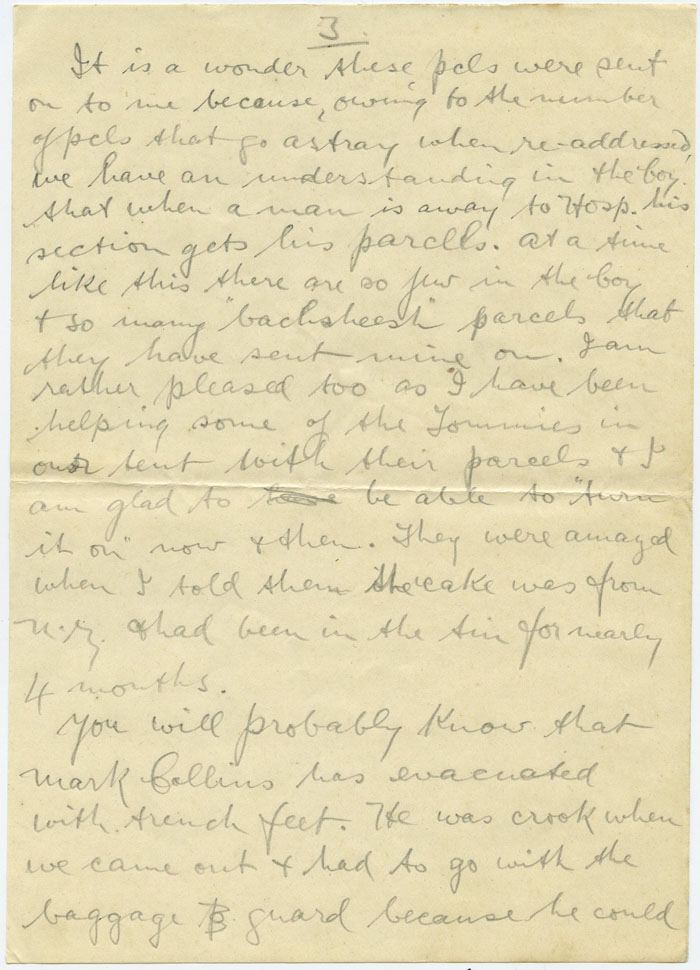 3.
It is a wonder these pcls were sent
on to me because, owing to the number
of pcls that go astray when re-addressed,
we have an understanding in the Coy.
that when a man is away to Hosp. his
section gets his parcels. At a time
like this there are so few in the Coy
& so many "bachsheesh" parcels that
they have sent mine on. I am
rather pleased too as I have been
helping some of the Tommies in
our tent with their parcels & I
am glad to be able to "turn
it on" now & then. They were amazed
when I told them the cake was from
N.Z. & had been in the tin for nearly
4 months.
You will probably know that
Mark Collins has evacuated
with trench feet. He was crook when
we came out & had to go with the
baggage guard because he could